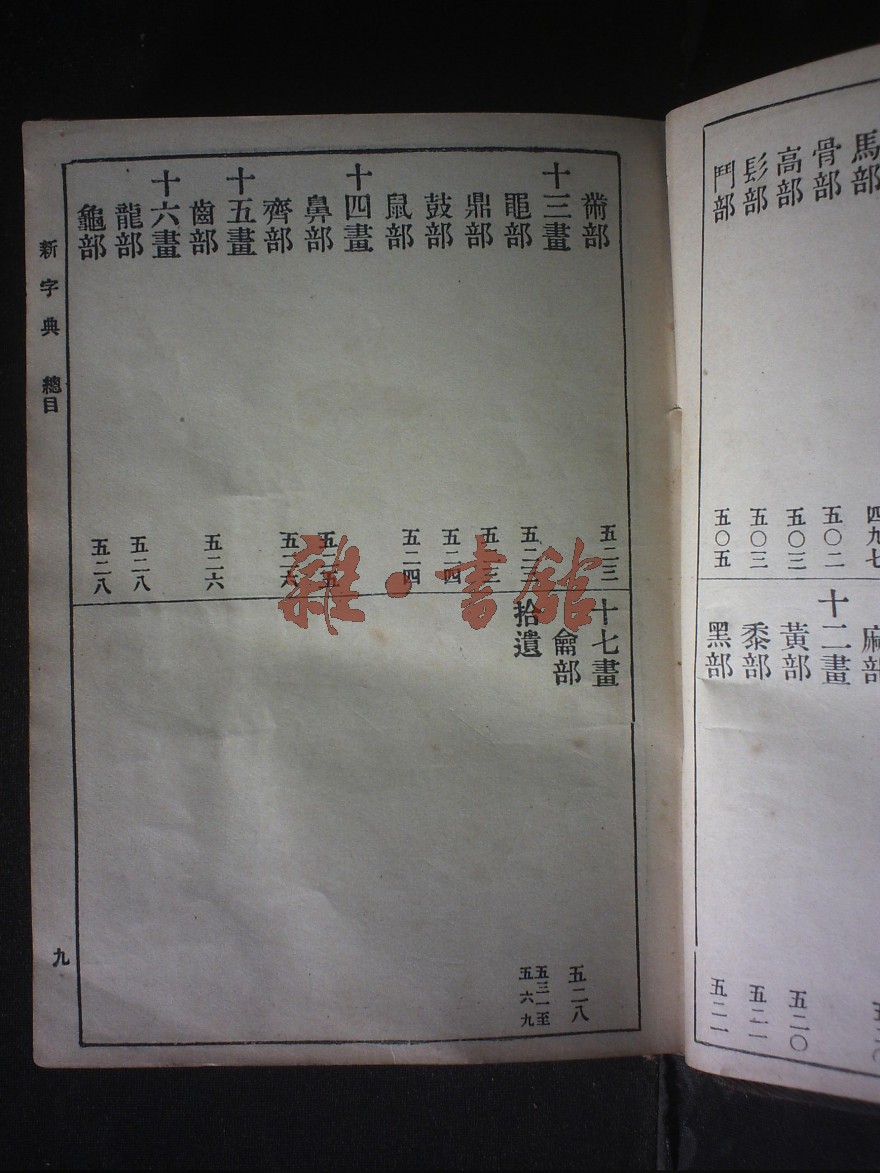 馬部 四九七
骨部 五〇二
高部 五〇三
髟部 五〇三
鬥部 五〇五
麻部
十二畫
黃部 五二〇
黍部 五二一
黑部 五二一
黹部 五二三
十三畫
黽部 五二三
鼎部
鼓部 五二四
鼠部 五二四
十四畫
鼻部 五二五
齊部 五二六
十五畫
齒部 五二六
十六畫
龍部 五二八
龜部 五二八
十七畫
龠部 五二八
拾遺 五三一至五六九
新字典 總目
九
雜·書館